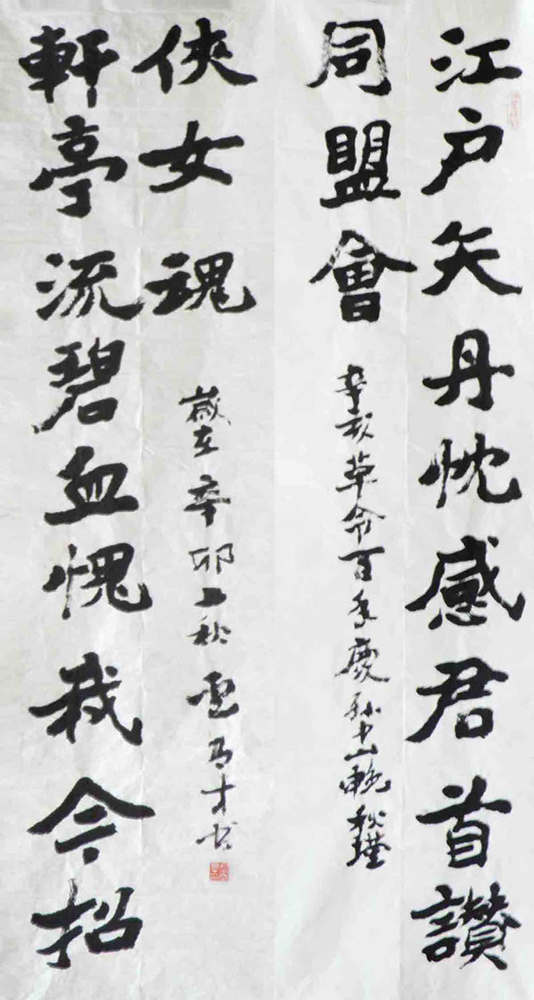 江户矢丹忱感君首讚
同盟會
辛亥革命百年慶孙中山輓秋瑾
軒亭流碧血愧我今招
俠女魂
歲在辛卯之秋才书